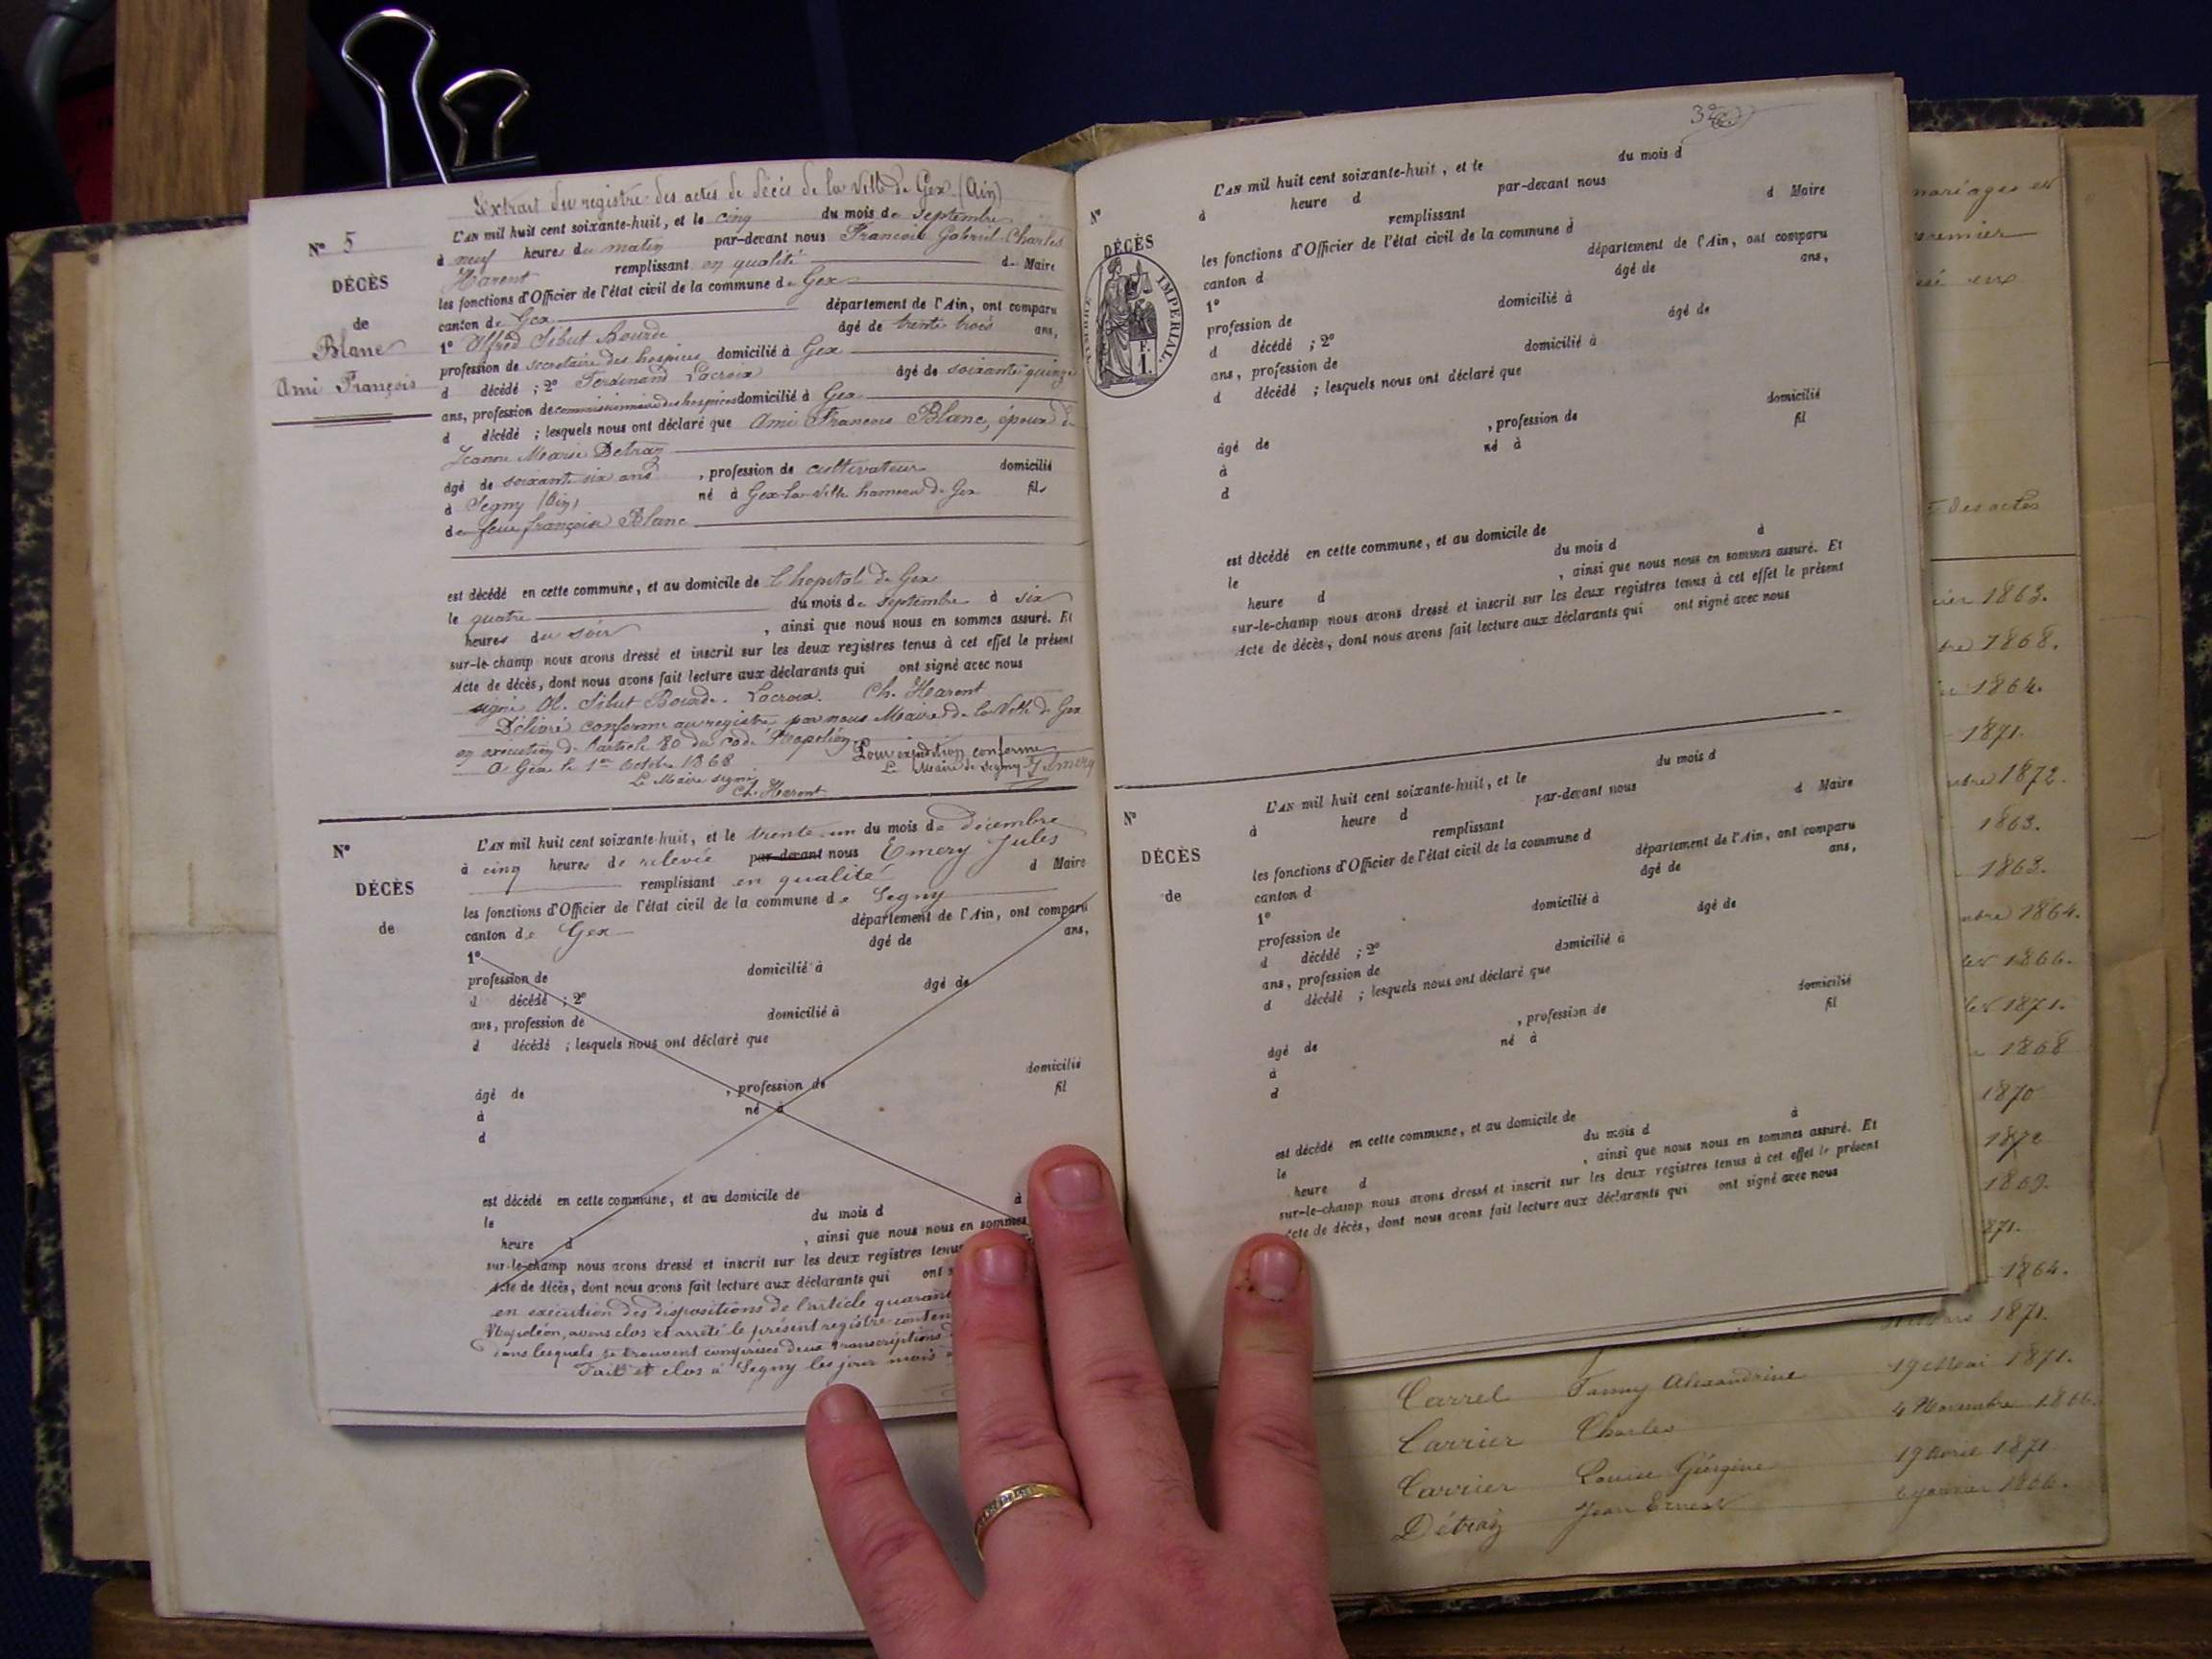 Extrait du registre des actes de décès de la Ville de Gex (Ain)
N° 5
DÉCÈS
de
Blanc
Ami François
L'AN mil huit cent soixante-huit, et le cinq du mois de septembre
à neuf heures du matin par-devant nous François Gabriel Charles
Harent remplissant en qualité de Maire
les fonctions d'Officier de l'état civil de la commune de Gex
canton de Gex département de l'Ain, ont comparu
1° Alfred Sibut Bourde âgé de trente trois ans,
profession de secrétaire des hospices domicilié à Gex
d décédé ; 2° Ferdinand Lacroix âgé de soixante quinze
ans, profession de commissionnaire des hospices domicilié à Gex
d décédé ; lesquels nous ont déclaré que Ami François Blanc, époux de
Jeanne Marie Detraz
âgé de soixante six ans , profession de cultivateur domicilié
à Segny (Ain) né à Gex-la-Ville hameau de Gex fils
de feu françois Blanc
est décédé en cette commune, et au domicile de l'hopital de Gex
le quatre du mois de septembre à six
heures du soir , ainsi que nous nous en sommes assuré. Et
sur-le-champ nous avons dressé et inscrit sur les deux registres tenus à cet effet le présent
Acte de décès, dont nous avons fait lecture aux déclarants qui ont signé avec nous
signé Al. Sibut Bourde. Lacroix. Ch. Harent
Délivré conforme au registre par nous Maire de la Ville de Gex
en exécution de l'article 80 du code Napoléon.
A Gex le 1er Octobre 1868
Le Maire signé
Ch. Harent
Pour expédition conforme
Le Maire de Segny J. Emery
N°
DÉCÈS
de
L'AN mil huit cent soixante-huit, et le trente-un du mois de décembre
à cinq heures de relevée par-devant nous Emery Jules
remplissant en qualité d Maire
les fonctions d'Officier de l'état civil de la commune de Segny
canton de Gex département de l'Ain, ont comparu
1° âgé de ans,
profession de domicilié à
d décédé ; 2° âgé de
ans, profession de domicilié à
d décédé ; lesquels nous ont déclaré que
âgé de , profession de domicilié
à né à fil
d
est décédé en cette commune, et au domicile de
le du mois d à
heure d , ainsi que nous nous en sommes
sur-le-champ nous avons dressé et inscrit sur les deux registres tenus
Acte de décès, dont nous avons fait lecture aux déclarants qui ont
en exécution des dispositions de l'article quarant
Napoléon, avons clos et arrêté le présent registre conten
dans lesquels se trouvent comprises deux transcriptions
Fait et clos à Segny les jour mois
N°
DÉCÈS
TIMBRE IMPÉRIAL.
F.
1.
L'AN mil huit cent soixante-huit, et le du mois d
à heure d par-devant nous
remplissant d Maire
les fonctions d'Officier de l'état civil de la commune d
canton d département de l'Ain, ont comparu
1° âgé de ans,
profession de domicilié à
d décédé ; 2° âgé de
ans, profession de domicilié à
d décédé ; lesquels nous ont déclaré que
âgé de , profession de domicilié
à né à fil
d
est décédé en cette commune, et au domicile de
le du mois d à
heure d , ainsi que nous nous en sommes assuré. Et
sur-le-champ nous avons dressé et inscrit sur les deux registres tenus à cet effet le présent
Acte de décès, dont nous avons fait lecture aux déclarants qui ont signé avec nous
N°
DÉCÈS
de
L'AN mil huit cent soixante-huit, et le du mois d
à heure d par-devant nous
remplissant d Maire
les fonctions d'Officier de l'état civil de la commune d
canton d département de l'Ain, ont comparu
1° âgé de ans,
profession de domicilié à
d décédé ; 2° âgé de
ans, profession de domicilié à
d décédé ; lesquels nous ont déclaré que
âgé de , profession de domicilié
à né à fil
d
est décédé en cette commune, et au domicile de
le du mois d à
heure d , ainsi que nous nous en sommes assuré. Et
sur-le-champ nous avons dressé et inscrit sur les deux registres tenus à cet effet le présent
Acte de décès, dont nous avons fait lecture aux déclarants qui ont signé avec nous
mariages et
premier
des actes
1863.
1868.
1864.
1871.
1872.
1863.
1863.
1864.
1866.
1871.
1868
1870
1872
1869.
871.
1864.
1871.
Carrel Fanny Alexandrine 19 Mai 1871.
Carrier Charles 4 Novembre 1866.
Carrier Louise Géorgine 19 Avril 1871
Détraz Jean Ernest 6 janvier 1866.